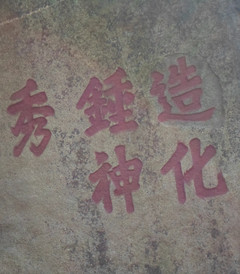 造化
鍾神
秀